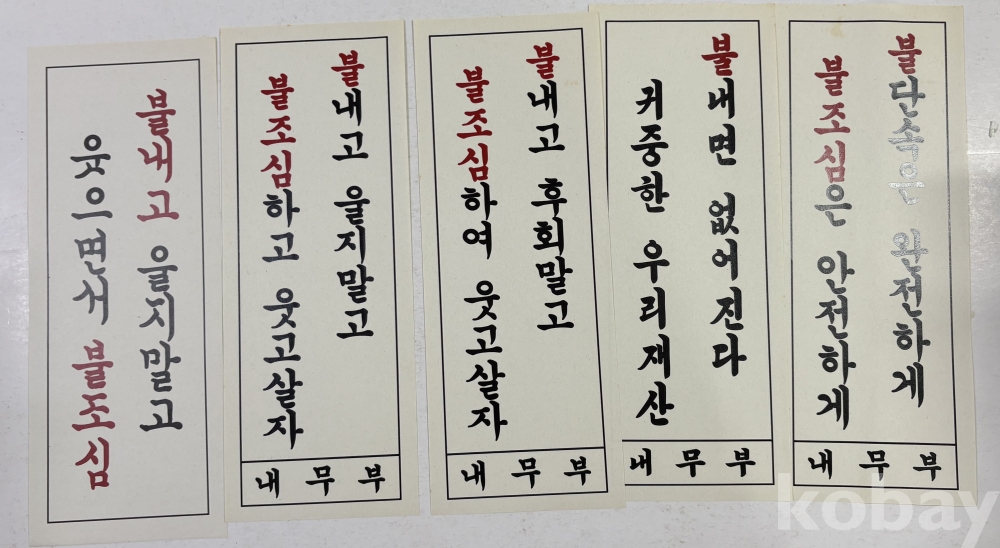 불내고 울지말고
웃으면서 불조심
불내고 울지말고
불조심하고 웃고살자
내무부
불내고 후회말고
불조심하여 웃고살자
내무부
불내면 없어진다
귀중한 우리재산
내무부
불단속은 완전하게
불조심은 안전하게
내무부
kobay